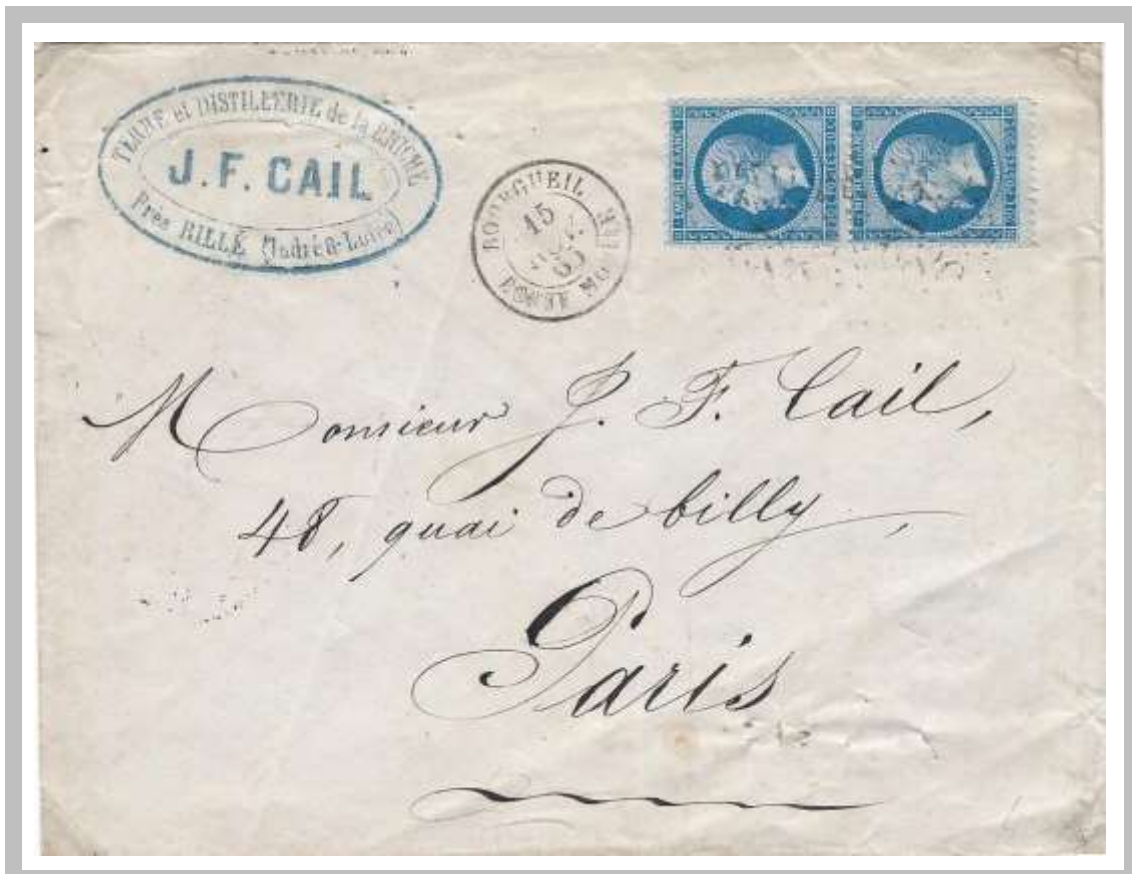 FERME et DISTILLERIE de la BRICHE
J. F. CAIL
Près RILLÉ (Indre & Loire)
BOURGUEIL
15
Monsieur J. F. Cail,
48, quai de billy,
Paris